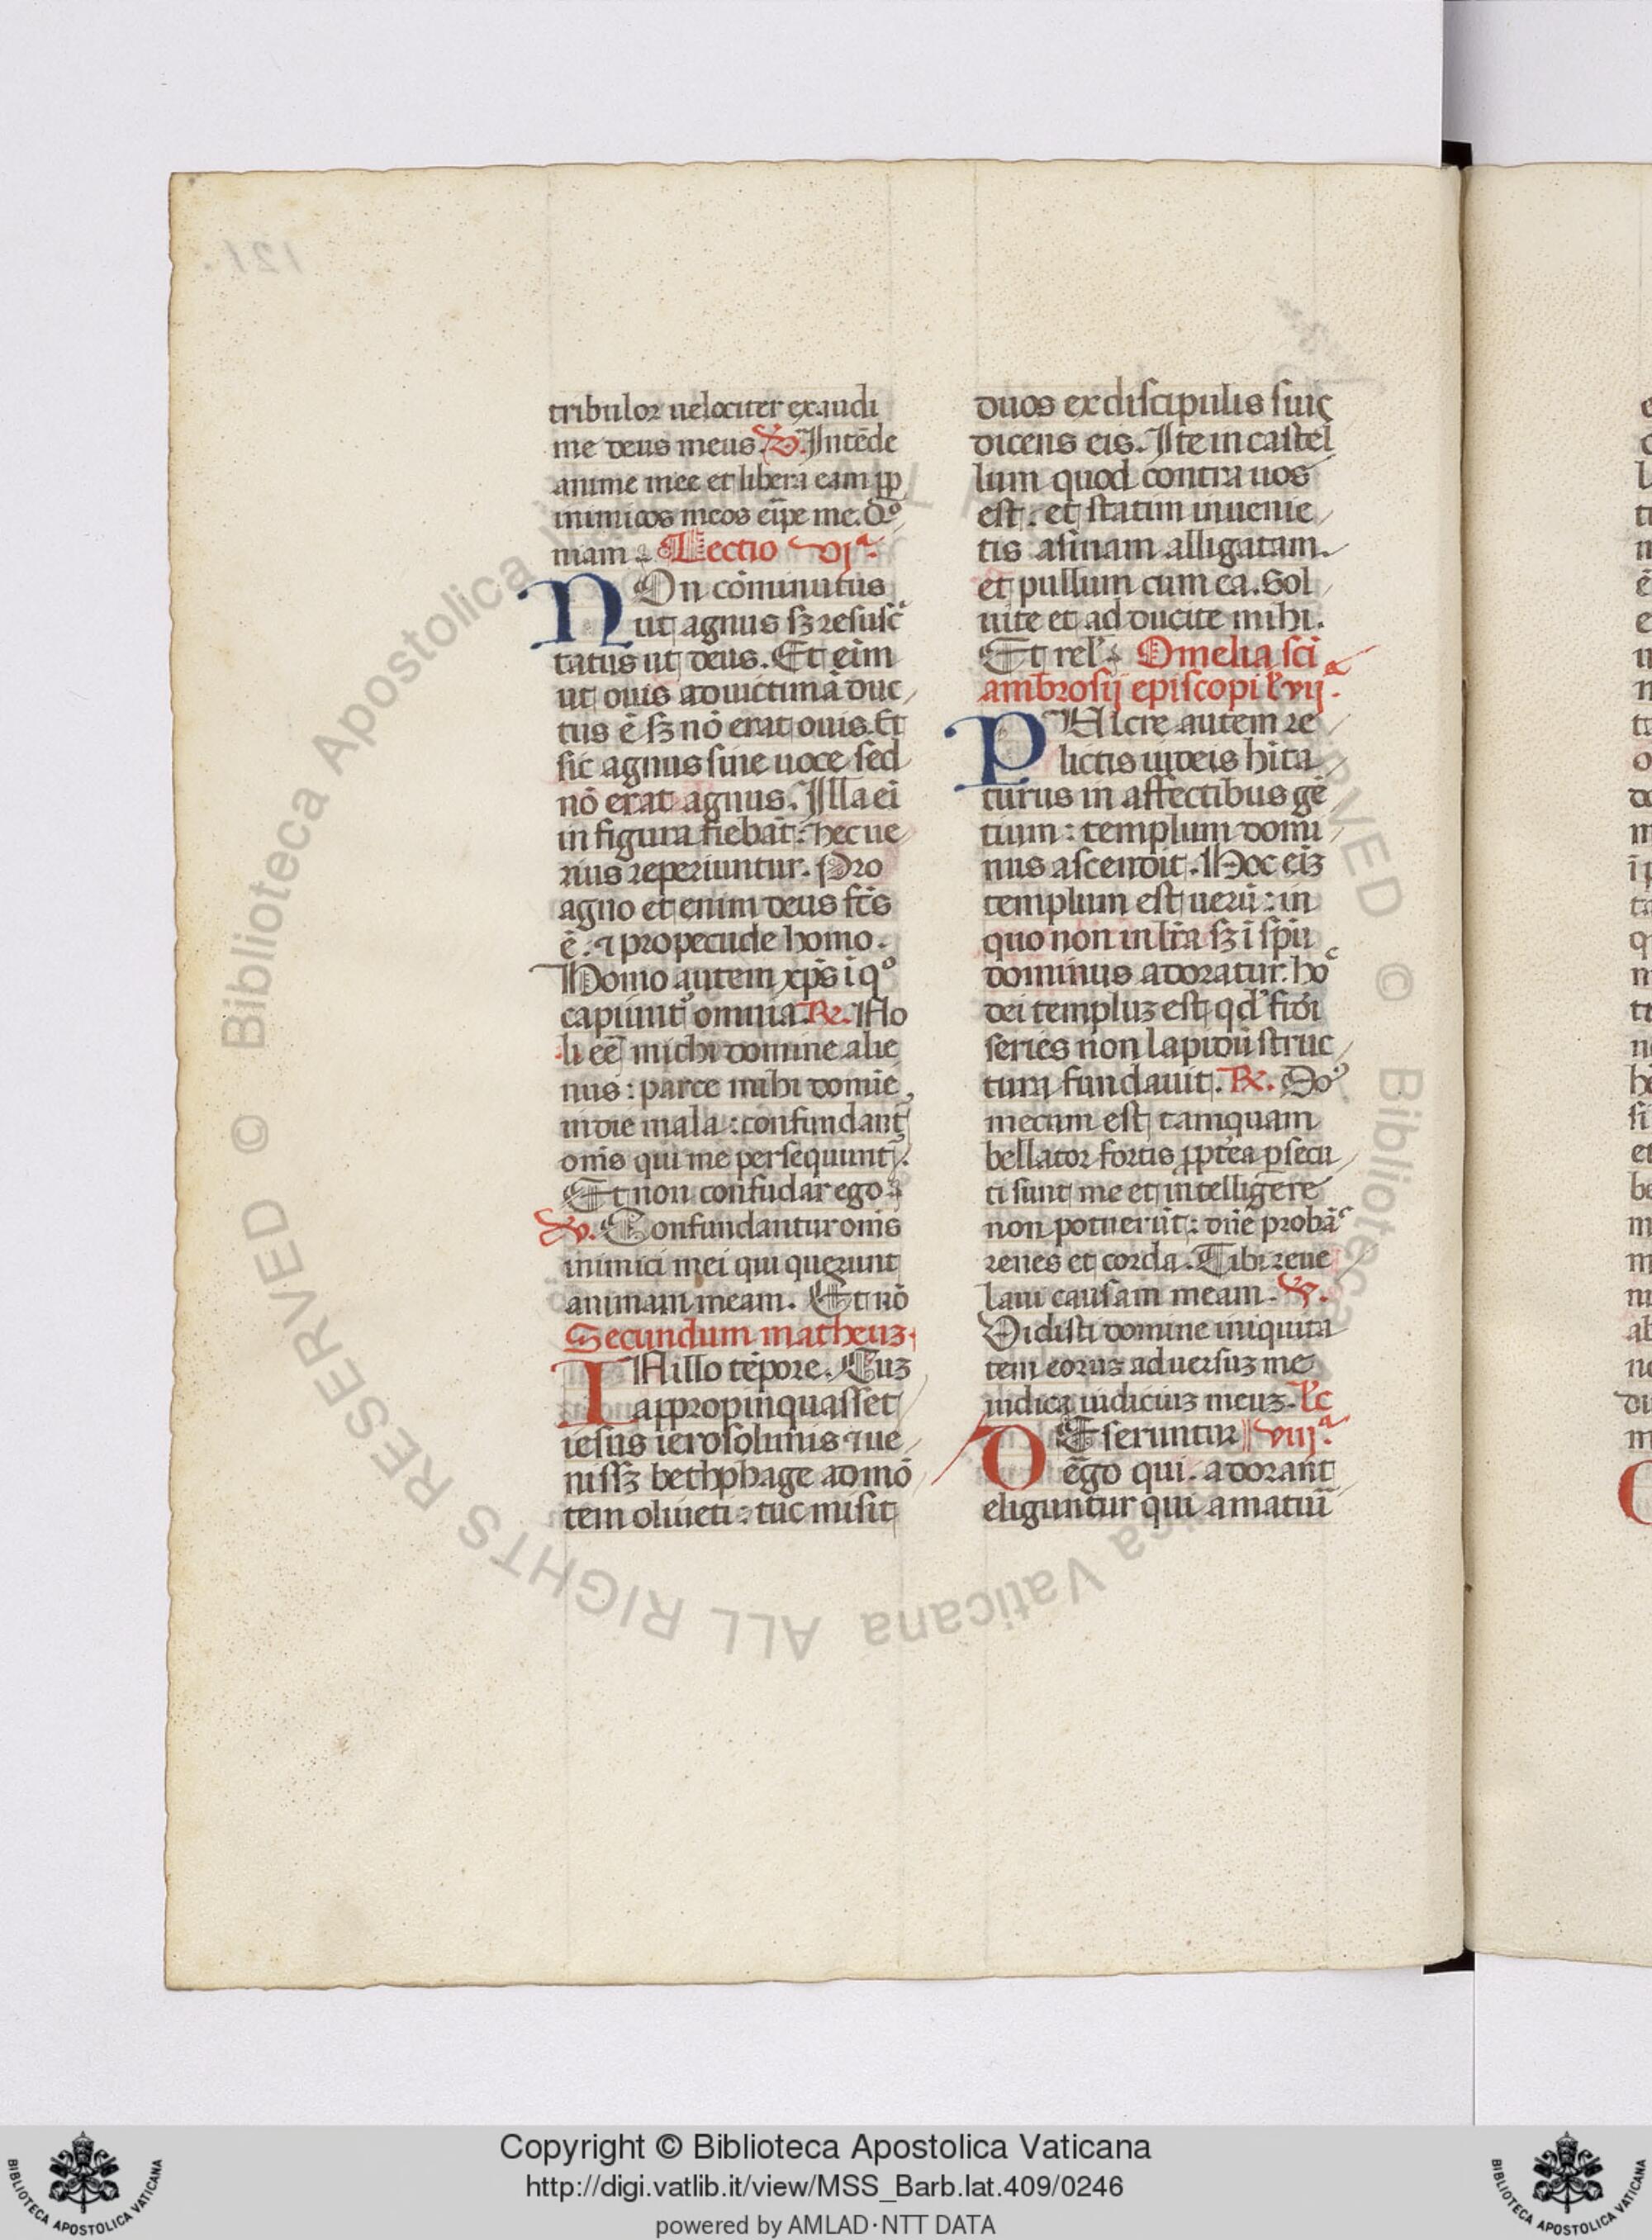 tribulor uelociter exaudi
me deus meus. ℣. Intēde
anime mee et libera eam ꝓp
inimicos meos eīpe me. Qo
niam. Lectio vjª.
NOn cōminutus
ut agnus sꝫ resusc̄
tatus ut deus. Et eim̄
ut ouis ad uictimā duc
tus ē sꝫ nō erat ouis. Et
sic agnus sine uoce sed
nō erat agnus. Illa ei
in figura fiebāt: hec ue
rius reperiuntur. Pro
agno et enim deus fc̄s
ē: ⁊ pro pecude homo.
Homo autem xp̄s ī qº
capiunt᷑ omnia. ℟. No
li eē michi domine alie
nus: parce mihi domīe
in die mala: confundant᷑
om̄s qui me persequunt᷑.
Et non confūdar ego.
℣. Confundantur om̄s
inimici mei qui querunt
animam meam. Et nō
Secundum matheuꝫ.
IN illo tēpore. Cuꝫ
appropinquasset
iesus ierosolimis ⁊ ue
nissꝫ bethphage ad mō
tem oliueti: tūc misit
duos ex discipulis suis
dicens eis. Ite in castel
lum quod contra uos
est: et statim inuenie
tis asinam alligatam.
et pullum cum ea. Sol
uite et adducite mihi.
Et rel̄. Omelia sc̄i
ambrosij episcopi. l. vijª.
PUlcre autem re
lictis iudeis hīta
turus in affectibus gē
tium: templum domi
nus ascendit. Hoc eīꝫ
templum est uerū: in
quo non in lr̄a sꝫ ī sp̄u
dominus adoratur. hoc
dei templuꝫ est qd̄ fidi
series non lapidū struc
tura fundauit. ℟. Dos
mecum est tamquam
bellator fortis ꝓpt̄ea ꝑsecu
ti sunt me et intelligere
non potuerūt: dn̄e probās
renes et corda. Tibi reue
laui causam meam. ℣.
Vidisti domine iniquita
tem eoruꝫ aduersuꝫ me
iudica iudiciuꝫ meuꝫ. Lc̄
DEseruntur viijª.
ēgo qui. adorant
eliguntur qui amatui
Copyright © Biblioteca Apostolica Vaticana
http://digi.vatlib.it/view/MSS_Barb.lat.409/0246
powered by AMLAD·NTT DATA